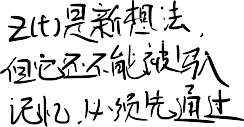 Z(t)是新想法，
但它还不能被写入
记忆，必须先通过